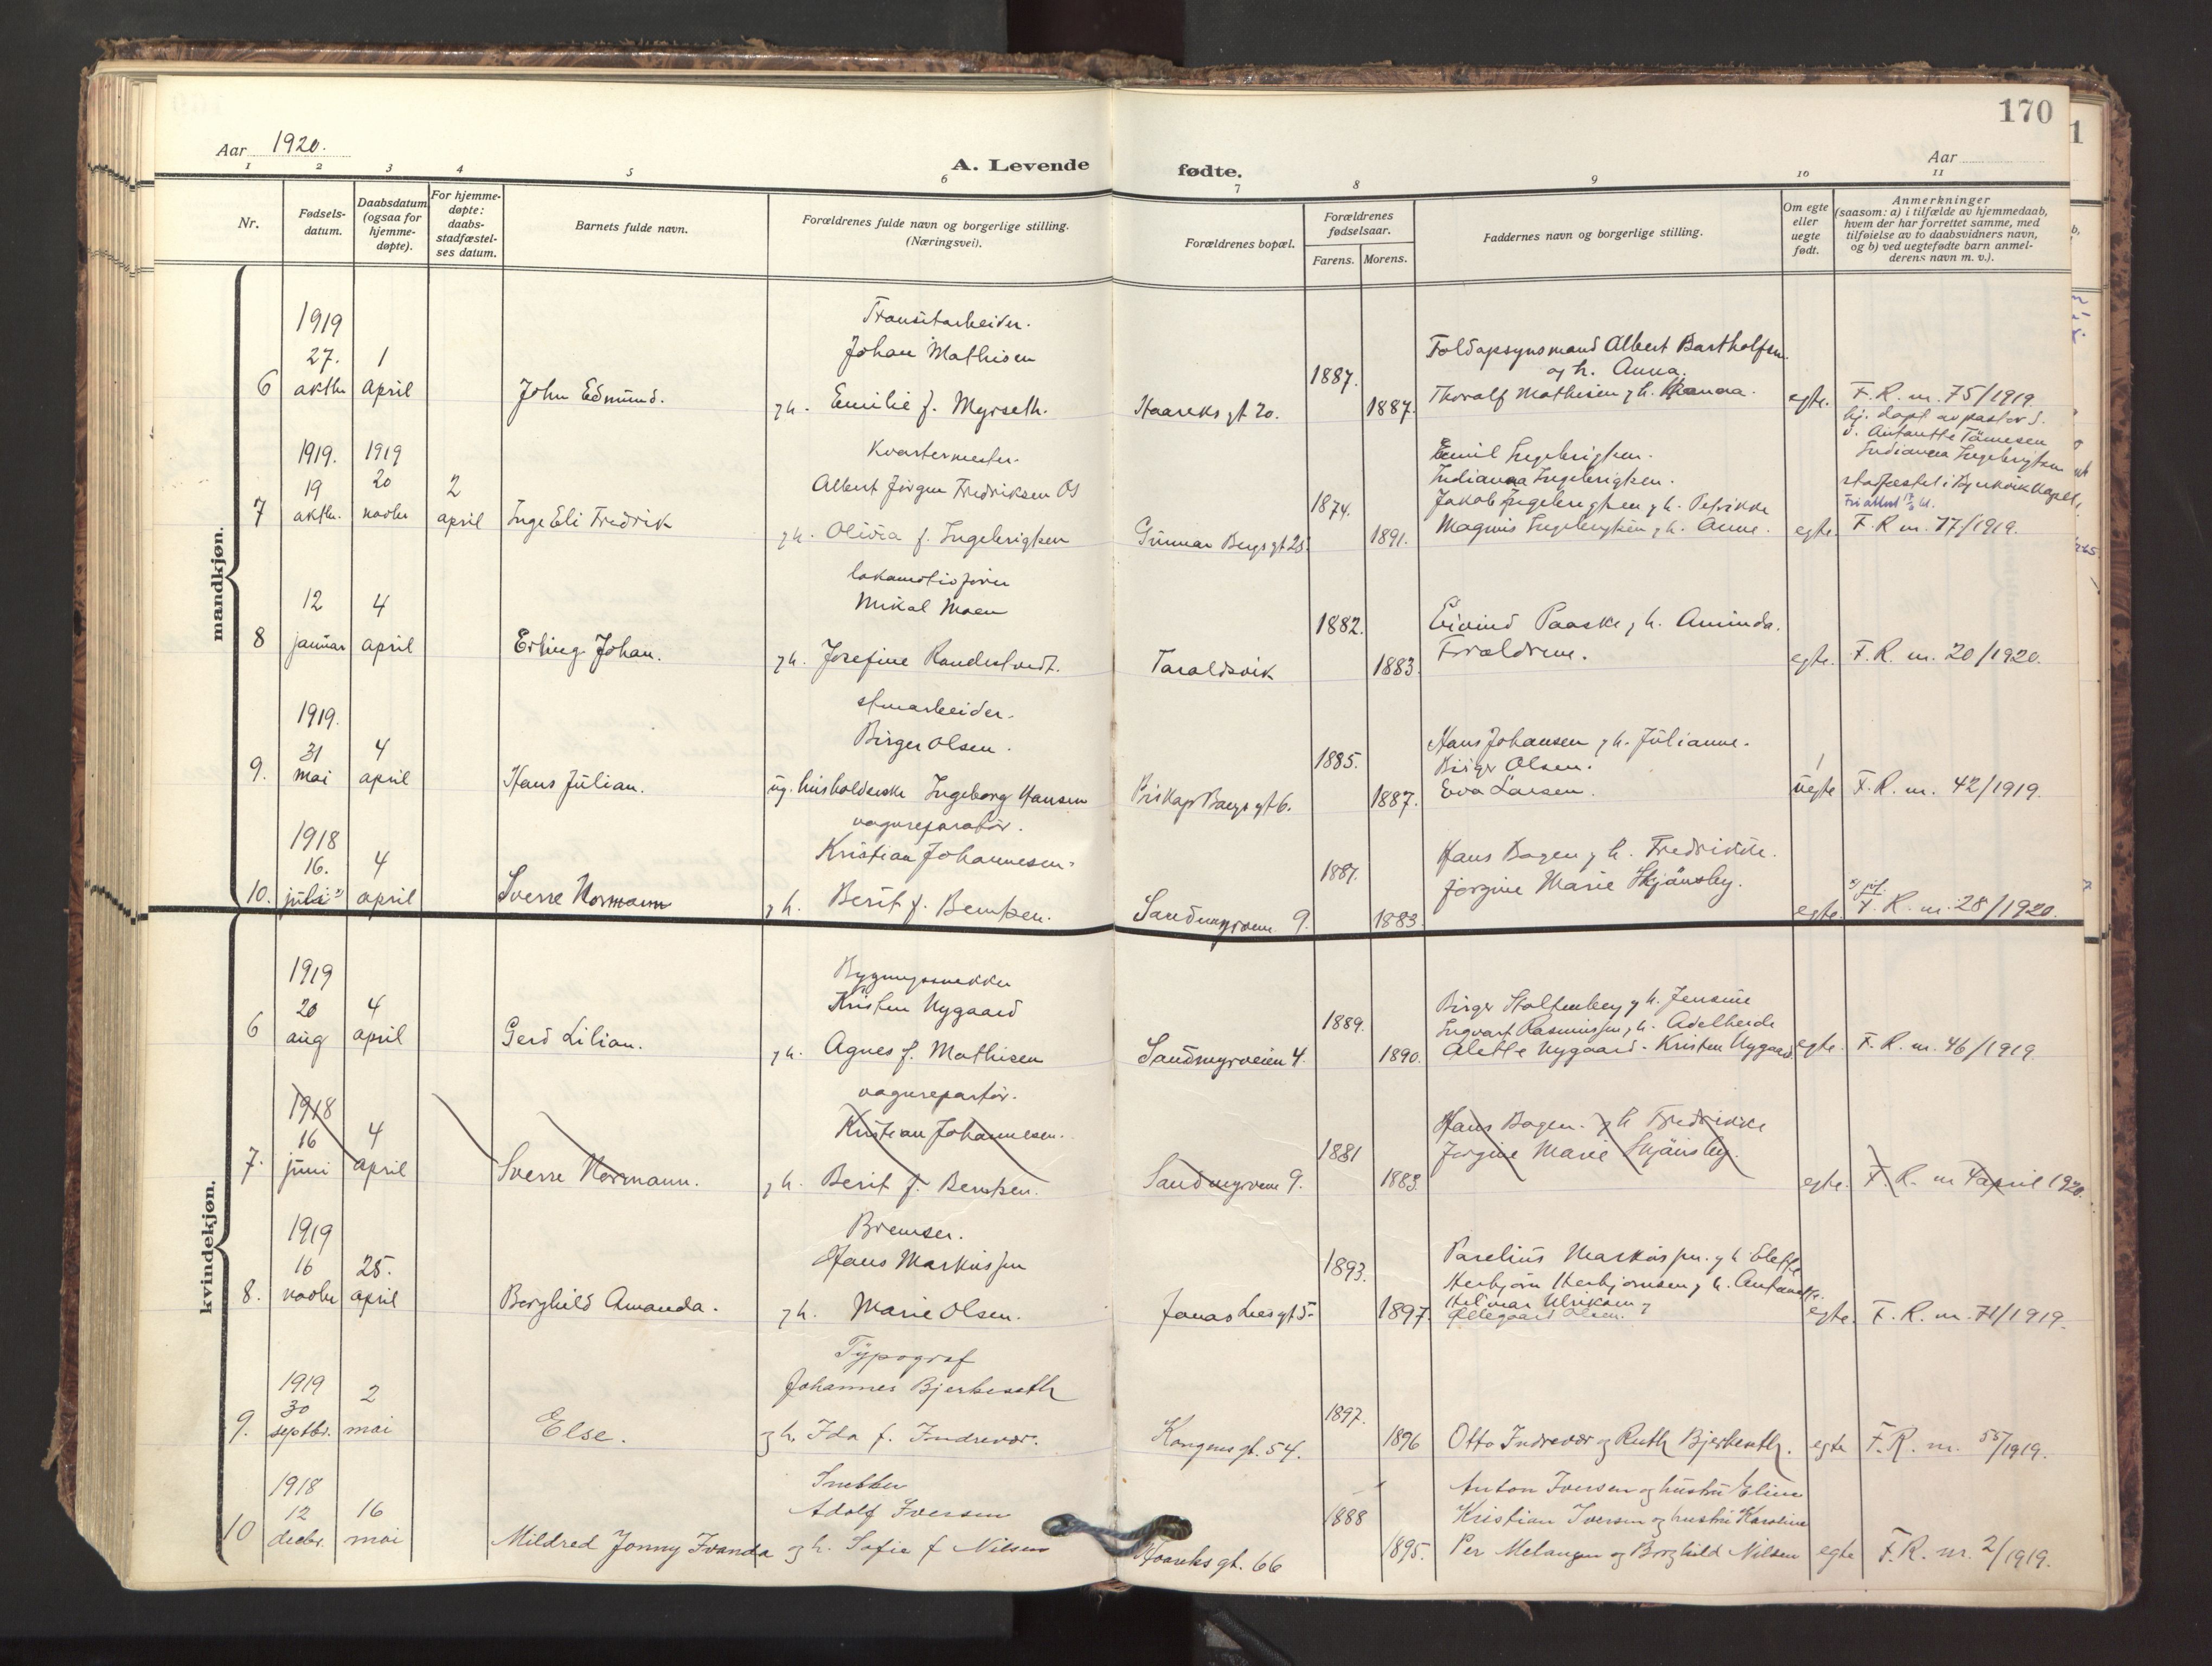 170
Aar 1920.
A. Levende fødte.
Aar
1 2 3 4 5 6 7 8 9 10 11
Nr.
Fødsels-
datum.
Daabsdatum
(ogsaa for
hjemme-
døpte).
For hjemme-
døpte:
daabs-
stadfæstel-
ses datum.
Barnets fulde navn.
Forældrenes fulde navn og borgerlige stilling.
(Næringsvei).
Forældrenes bopæl.
Forældrenes
fødselsaar.
Farens. Morens.
Faddernes navn og borgerlige stilling.
Om egte
eller
uegte
født.
Anmerkninger
(saasom: a) i tilfælde av hjemmedaab,
hvem der har forrettet samme, med
tilføielse av to daabsvidners navn,
og b) ved uegtefødte barn anmel-
derens navn m. v.).
mandkjøn.
1919 Transitarbeider.
27. 1 Johan Mathisen 1887. Albert Bartholfsen
og h. Anna.
6 oktbr april John Edmund. g h. Emilie f. Myrseth. Haareks gt 20. 1887. Thoralf Mathisen g h. egte. F. R. nr. 75/1919.
hj. døpt av pastor S.
1919. 1919 Kvartermester. Emil Ingebrigtsen.
19 20 2 Albert Jørgen Fredriksen Os 1874. Indianna Ingebrigtsen.
Jakob Ingebrigtsen g h. Petrikke
7 oktbr. novbr april Inge Eli Fredrik g h. Olivia f. Ingebrigtsen Gunnar Bergs gt 25. 1891. Magnus Ingebrigtsen g h. Anne. egte. F. R nr. 77/1919.
lokomotivfører
12 4 Mikal Moen 1882. Eivind Paaske g h. Aminda.
8 januar april Erling Johan. g h. Josefine Randestvedt. Taraldsvik 1883. Forældrene. egte. F. R. nr. 20/1920.
1919. stuearbeider.
31 4 Birger Olsen. 1885. Hans Johansen g h. Julianne.
Birger Olsen.
9. mai april Hans Julian. ug. husholderske Ingeborg Hansen Biskop Bangs gt 6. 1887. Eva Larsen. uegte F. R. nr. 42/1919.
1918 vognreparatør.
16. 4 Kristian Johannesen. 1887. Hans Bogen g h. Fredrikke.
10. april Sverre Normann g h. Berit f. Berntsen. Sandmyrveien 9. 1883. Jørgine Marie Skjånsby. egte. F. R. nr. 28/1920.
kvindekjøn.
1919 Bygningssnekker
20 4 Kristen Nygaard 1889. Birger Stoltenberg g h. Jensine
Ingvart Rasmussen g h. Adelheide
6 aug april Gerd Lilian. g h. Agnes f. Mathisen Sandmyrveien 4. 1890. Alette Nygaard - Kristen Nygaard egte. F. R. nr. 46/1919.
1918 vognrepartør.
16 4 Kristian Johannesen. 1881 Hans Bogen. g h Fredrikke
7. juni april Sverre Normann. g h. Berit f. Berntsen. Sandmyrveien 9. 1883. Jørgine Marie Skjånsby. egte. F. R. nr 4 april 1920.
1919 Bremser.
16 25. Hans Markussen 1893. Parelius Markussen. g h. Elette
Herbjørn Herbjørnsen g h. Antonette.
8. novbr april Borghild Amanda. g h. Marie Olsen. Jonas Lies gt 5- 1897. Hilmar Ulriksen g
Ollegaard Olsen. egte. F. R. nr. 71/1919.
Typograf
1919 Johannes Bjerkeseth
30 2 1897.
9. septbr. mai Else. og h. Ida f. Indrevær. Kongens gt. 54. 1896 Otto Indrevær og Ruth Bjerkeseth. egte F. R. nr. 55/1919.
1918 Snekker Anton Iversen og hustru Eline
12 16 Adolf Iversen 1888 Kristian Iversen og hustru Karoline
10 decbr. mai Mildred Jonny Ivanda og h. Sofie f Nilsen Haareks gt. 66 1895. Per Melangen og Borghild Nilsen egte F. R. nr. 2/1919.